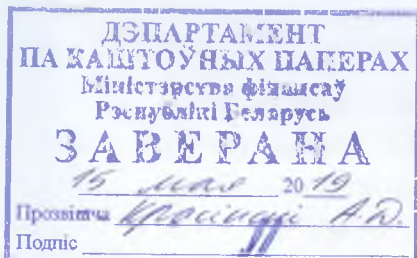 ДЭПАРТАМЕНТ
ПА КАШТОЎНЫХ ПАПЕРАХ
Міністэрства фінансаў
Рэспублікі Беларусь
ЗАВЕРАНА
15 мая 2019
Прозвішча А.Д.
Подпіс